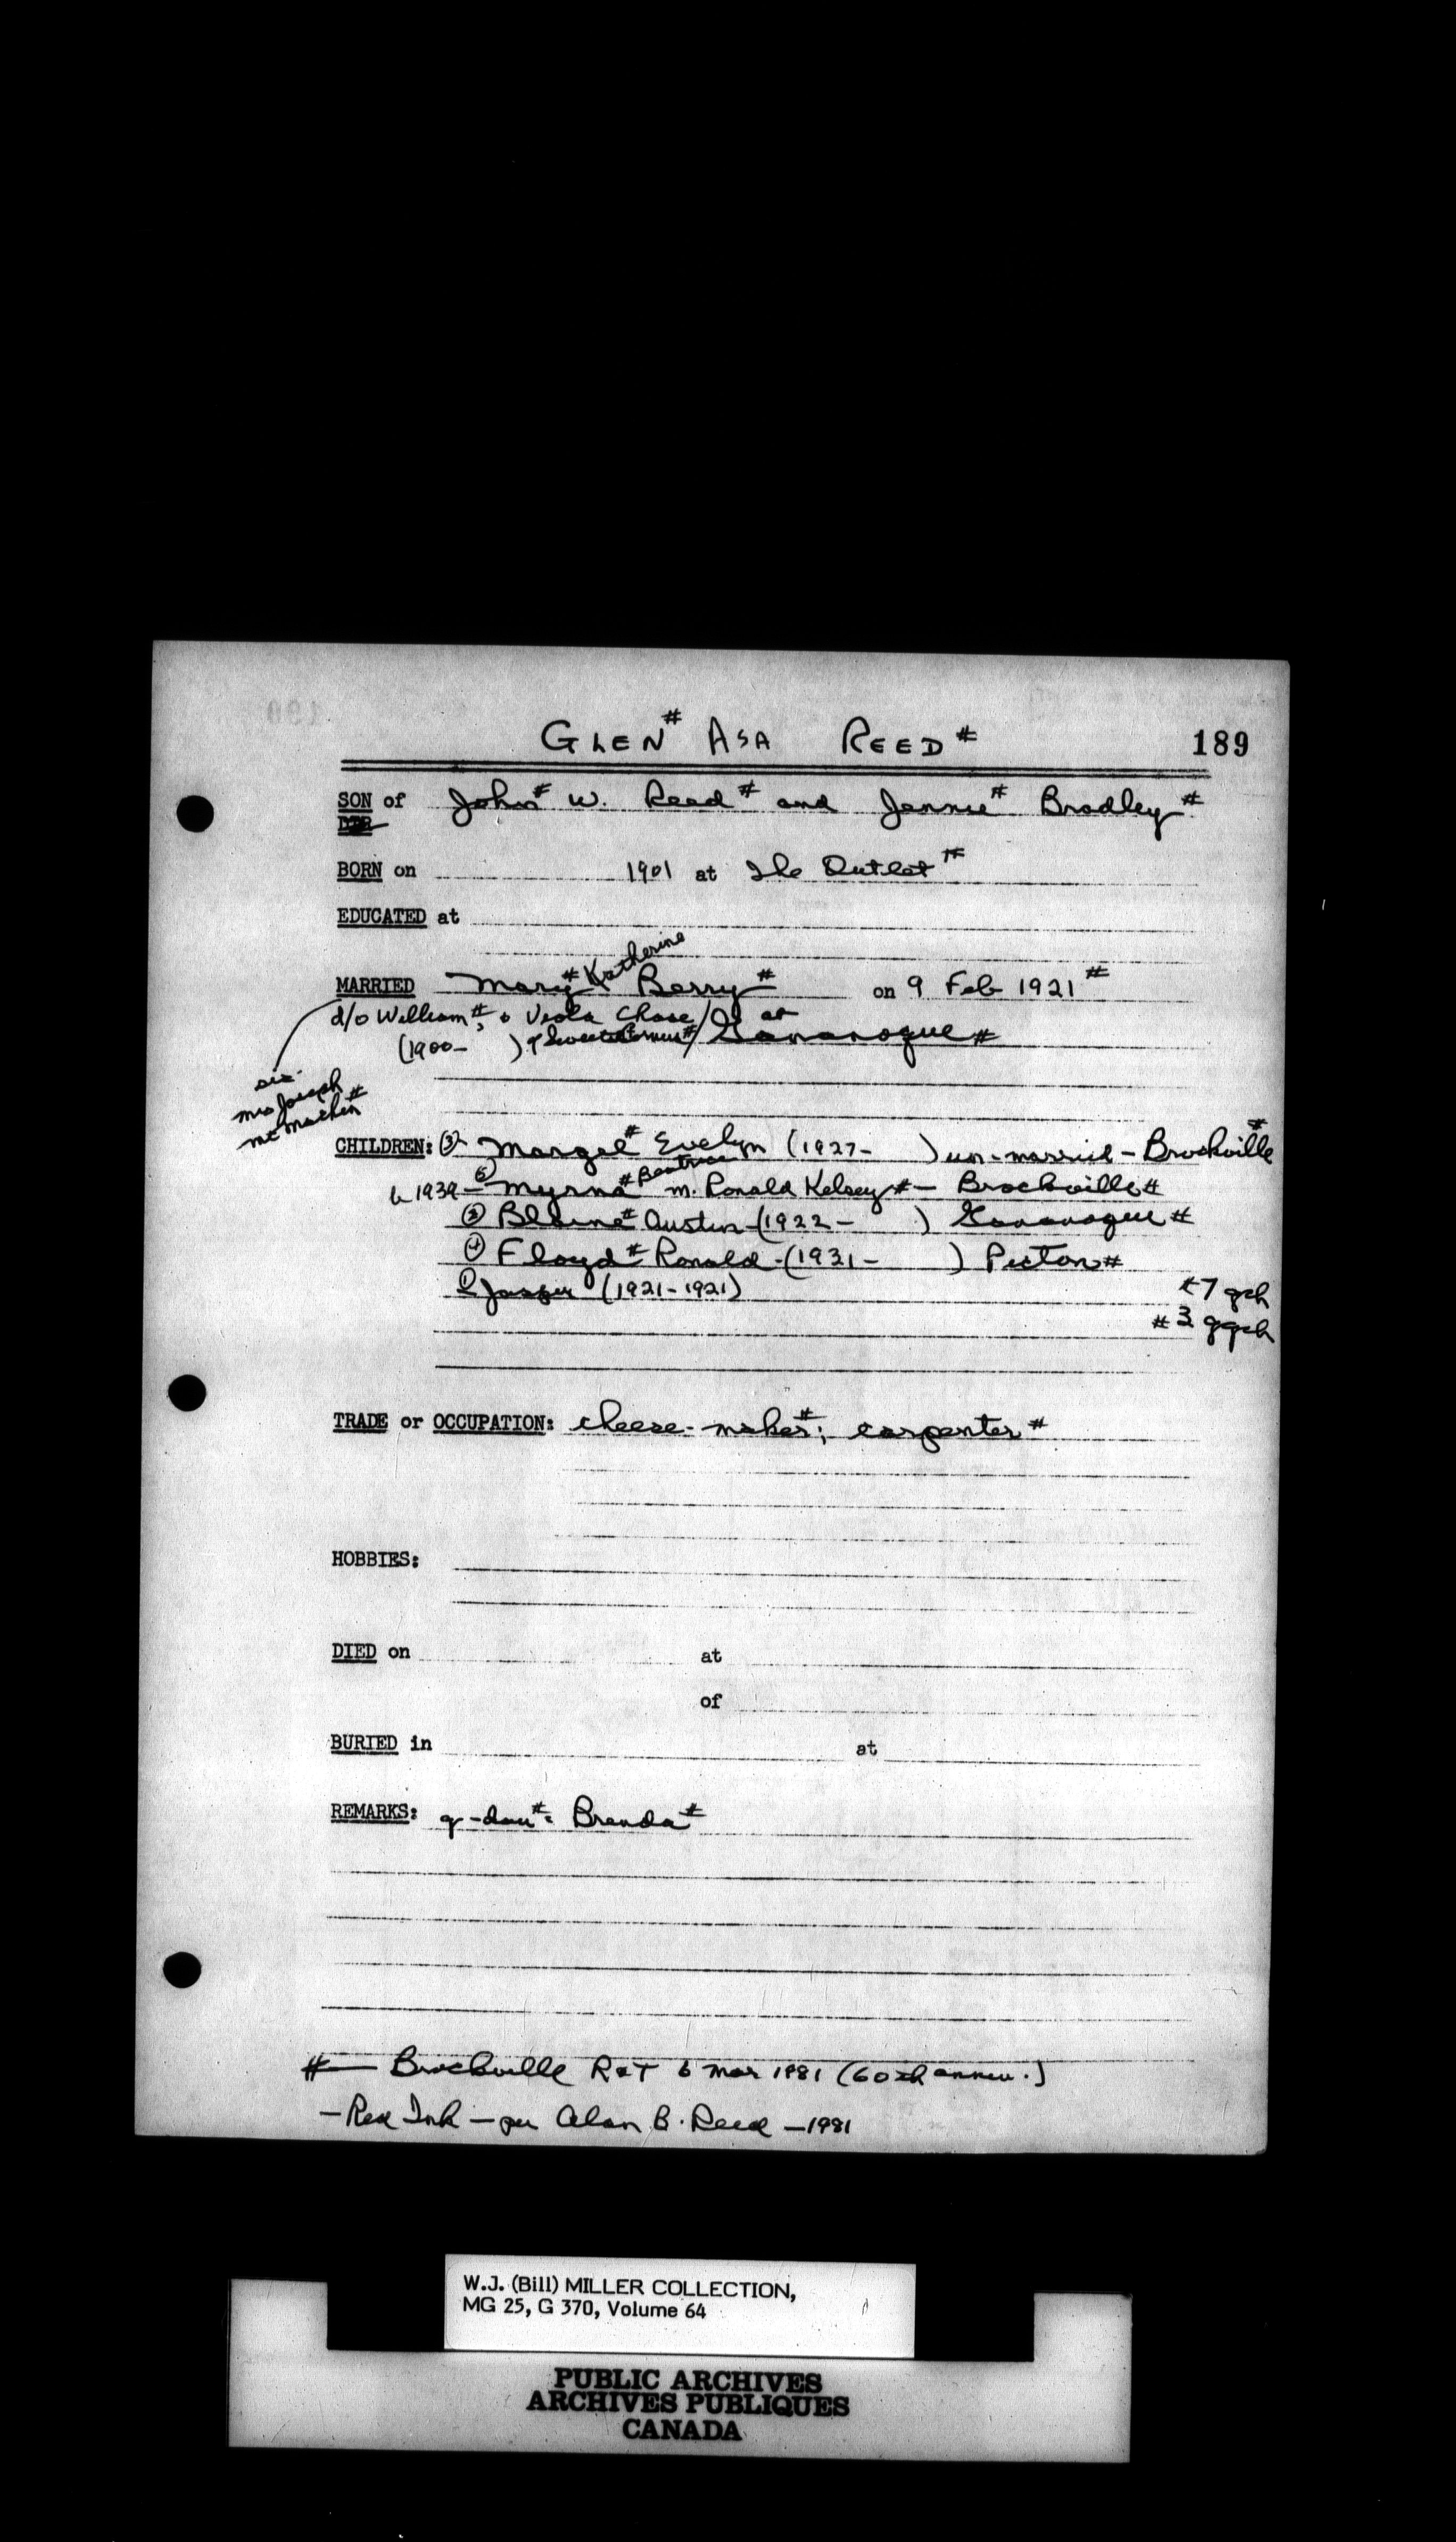 GLEN# ASA REED# 189
SON of John# W. Reed# and Jennie# Bradley#
DTR
BORN on 1901 at The Outlet#
EDUCATED at
Katherine
MARRIED Mary# Berry# on 9 Feb 1921#
d/o William# & Viola Chase at
(1900- ) of Sweets Corners# / Gananoque#
sis-
Mrs Joseph
McMachen#
CHILDREN: (3) Margel# Evelyn (1927- ) un-married - Brockville#
b 1939 - (5) Myrna# Beatrice m. Ronald Kelsey# - Brockville#
(2) Blaine# Austin (1922- ) Gananoque#
(4) Floyd# Ronald (1931- ) Picton#
(1) Jasper (1921-1921) #7 gch
#3 ggch
TRADE or OCCUPATION: cheese-maker#; carpenter#
HOBBIES:
DIED on at
of
BURIED in at
REMARKS: g-dau#: Brenda#
# — Brockville R&T 6 Mar 1981 (60th anniv.)
- Red Ink - per Alan B. Reed - 1981
W.J. (Bill) MILLER COLLECTION,
MG 25, G 370, Volume 64
PUBLIC ARCHIVES
ARCHIVES PUBLIQUES
CANADA